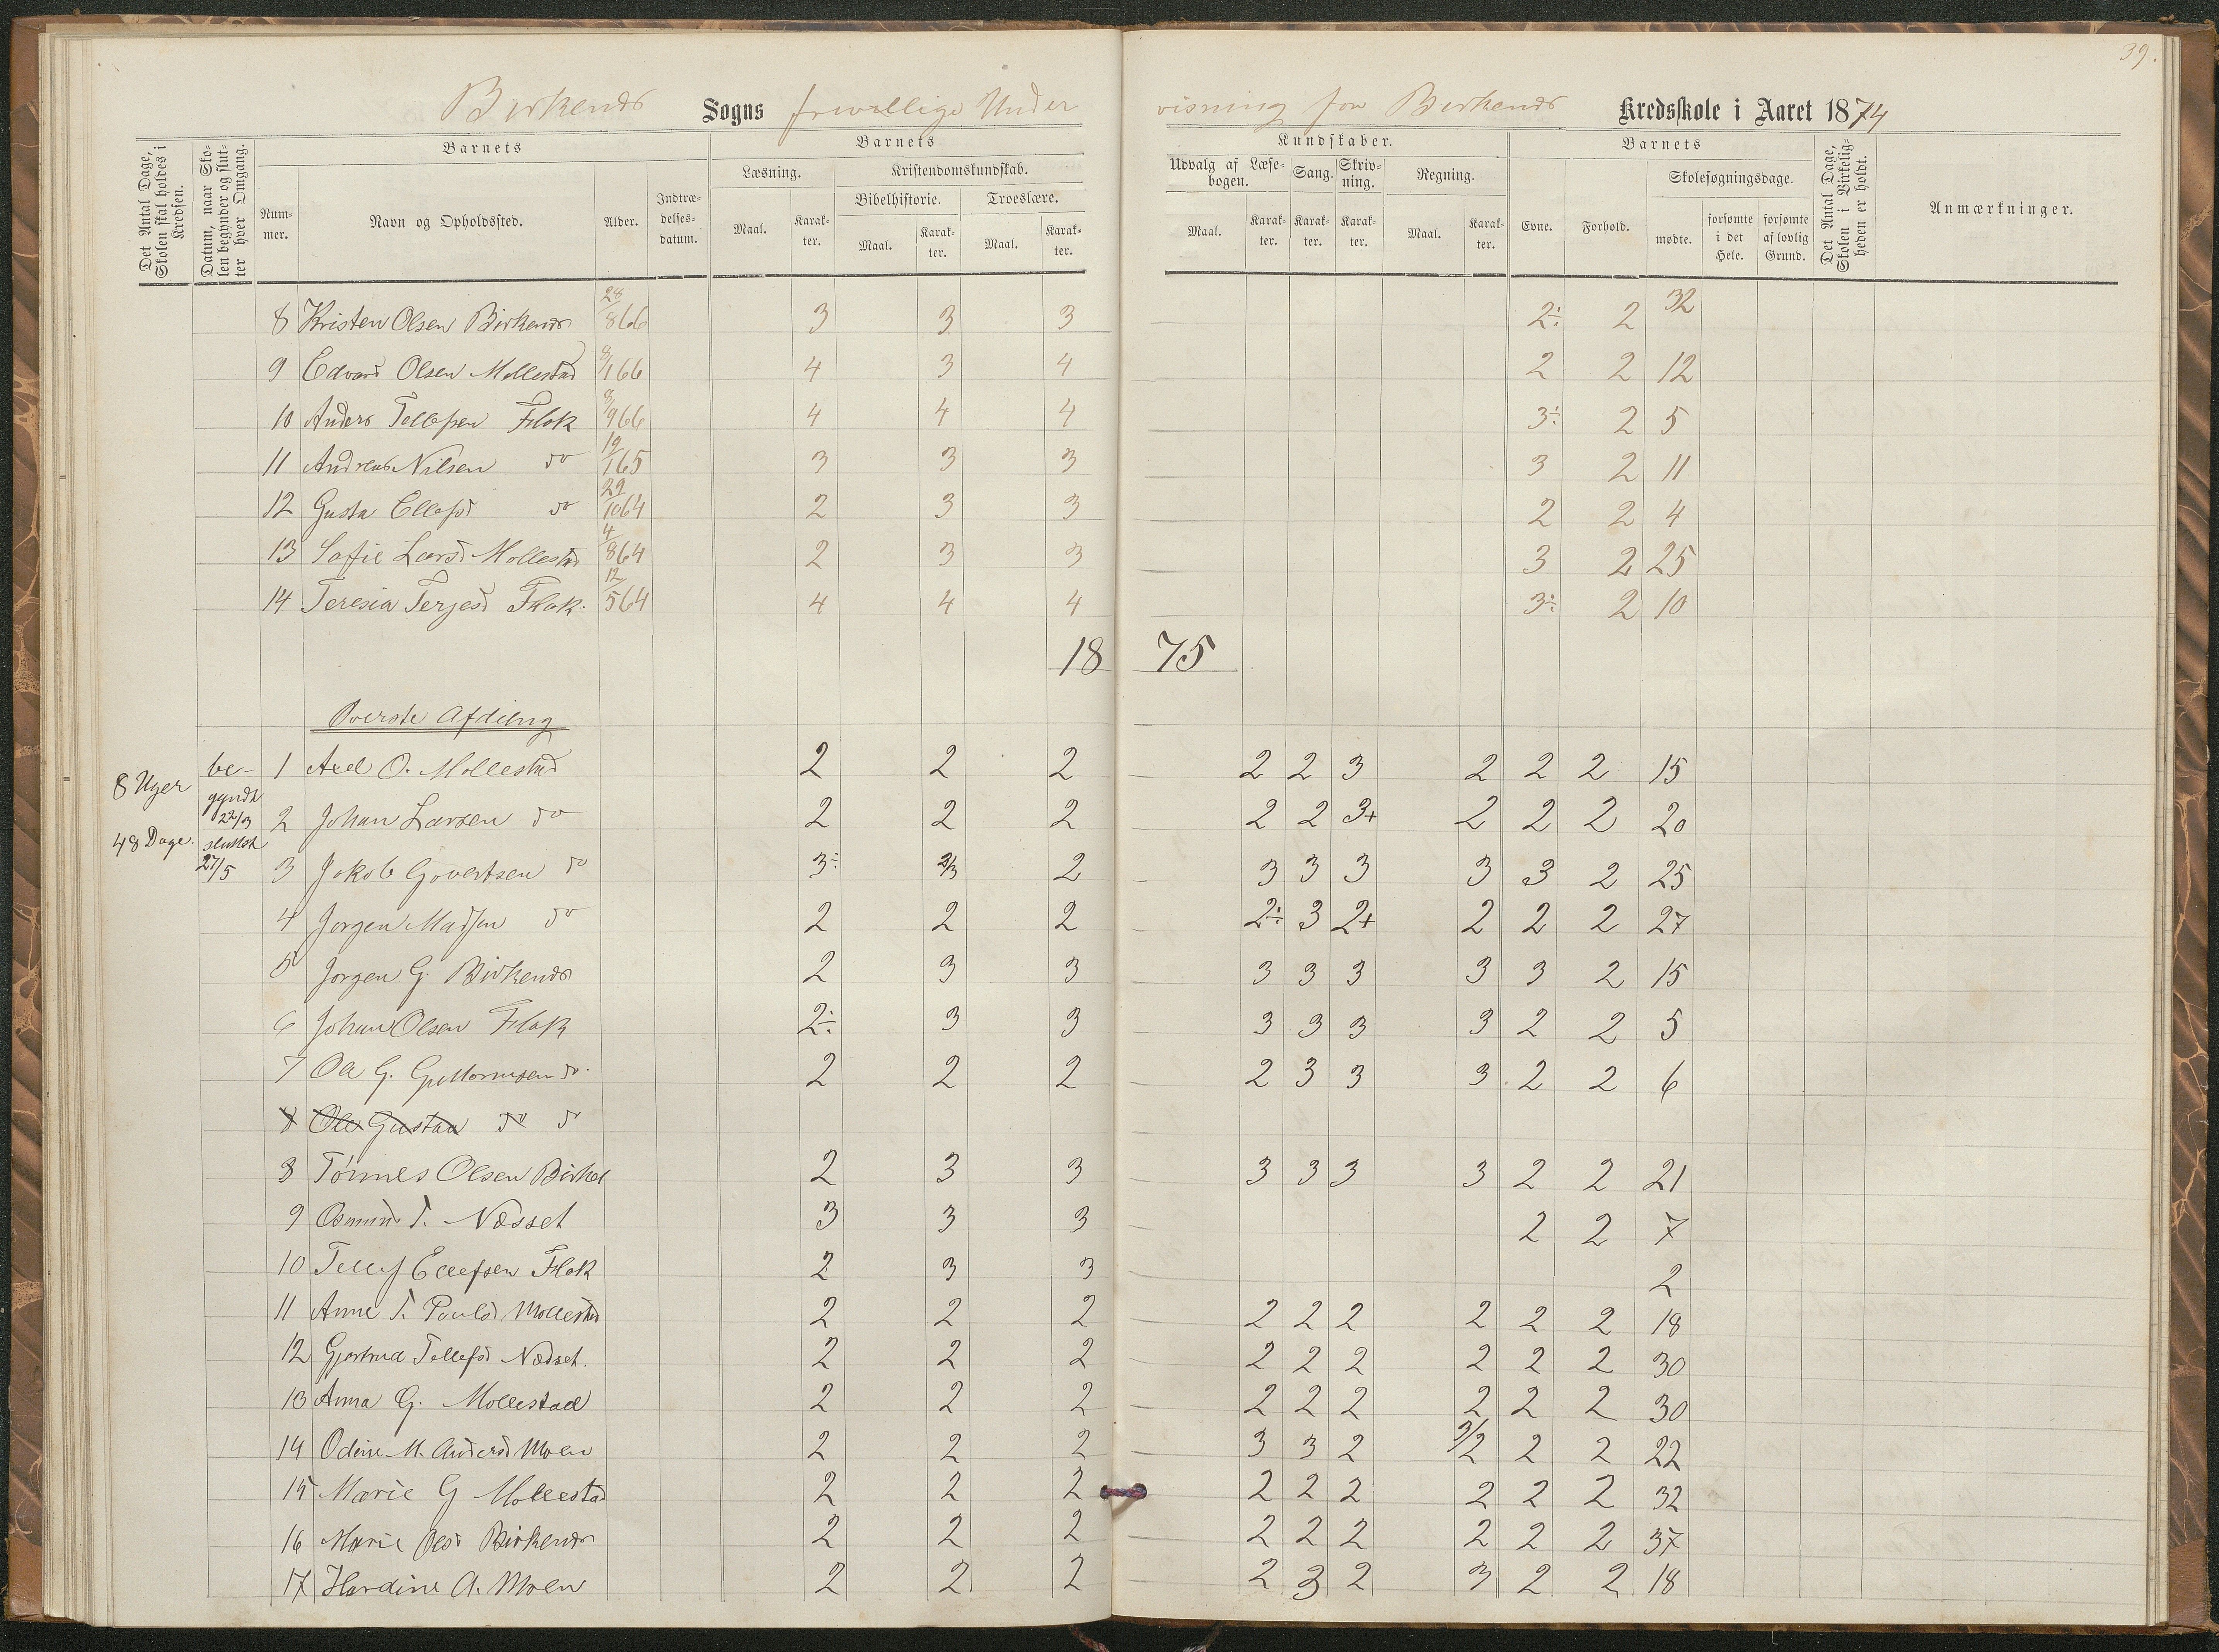 39.
Birkenes Sogns frivillige Under visning for Birkenes Kredsskole i Aaret 1874
Det Antal Dage, Skolen skal holdes i Kredsen.
Datum, naar Skolen begynder og slutter hver Omgang.
Barnets
Nummer.
Navn og Opholdssted.
Alder.
Indtrædelsesdatum.
Barnets
Læsning.
Maal.
Karakter.
Kristendomskundskab.
Bibelhistorie.
Maal.
Karakter.
Troeslære.
Maal.
Karakter.
Kundskaber.
Udvalg af Læsebogen.
Maal.
Karakter.
Sang.
Karakter.
Skrivning.
Karakter.
Regning.
Maal.
Karakter.
Barnets
Evne.
Forhold.
Skolesøgningsdage.
mødte.
forsømte i det Hele.
forsømte af lovlig Grund.
Det Antal Dage, Skolen i Virkeligheden er holdt.
Anmærkninger.
8 Kristen Olsen Birkenes 28/8 66 3 3 3 2÷ 2 32
9 Edvard Olsen Mollestad 8/1 66 4 3 4 2 2 12
10 Anders Tellefsen Flak 8/9 66 4 4 4 3÷ 2 5
11 Andreas Nilsen do 19/1 65 3 3 3 3 2 11
12 Gusta Ellefsd do 29/10 64 2 3 3 2 2 4
13 Saffie Larsd Mollestad 4/8 64 2 3 3 3 2 25
14 Teresia Terjesd Flak. 12/5 64 4 4 4 3÷ 2 10
18 75
Øverste Afdeling
8 Uger
48 Dage.
be-
gyndt
22/3
sluttet
27/5
1 Axel O. Mollestad 2 2 2 2 2 3 2 2 2 15
2 Johan Larsen do 2 2 2 2 2 3+ 2 2 2 20
3 Jakob Govertsen do 3÷ 2/3 2 3 3 3 3 3 2 25
4 Jorgen Madsen do 2 2 2 2÷ 3 2+ 2 2 2 27
5 Jorgen G. Birkenes 2 3 3 3 3 3 3 3 2 15
6 Johan Olsen Flak 2÷ 3 3 3 3 3 3 2 2 5
7 Ole G. Guttormsen do. 2 2 2 2 3 3 3 2 2 6
8 Ole Gustav do do
8 Tønnes Olsen Birkel 2 3 3 3 3 3 3 2 2 21
9 Osmund T. Næsset 3 3 3 2 2 7
10 Tellef Ellefsen Flak 2 3 3 2
11 Anne T. Paulsd Mollestad 2 2 2 2 2 2 2 2 2 18
12 Gjertrud Tellefsd Nædset. 2 2 2 2 2 2 2 2 2 30
13 Anna G. Mollestad 2 2 2 2 2 2 2 2 2 30
14 Odine M. Andersd Moen 2 2 2 3 3 2 3/2 2 2 22
15 Marie G Mollestad 2 2 2 2 2 2 2 2 2 32
16 Marie Olsd Birkenes 2 2 2 2 2 2 2 2 2 37
17 Hardine A. Moen 2 2 2 2 3 2 3 2 2 18